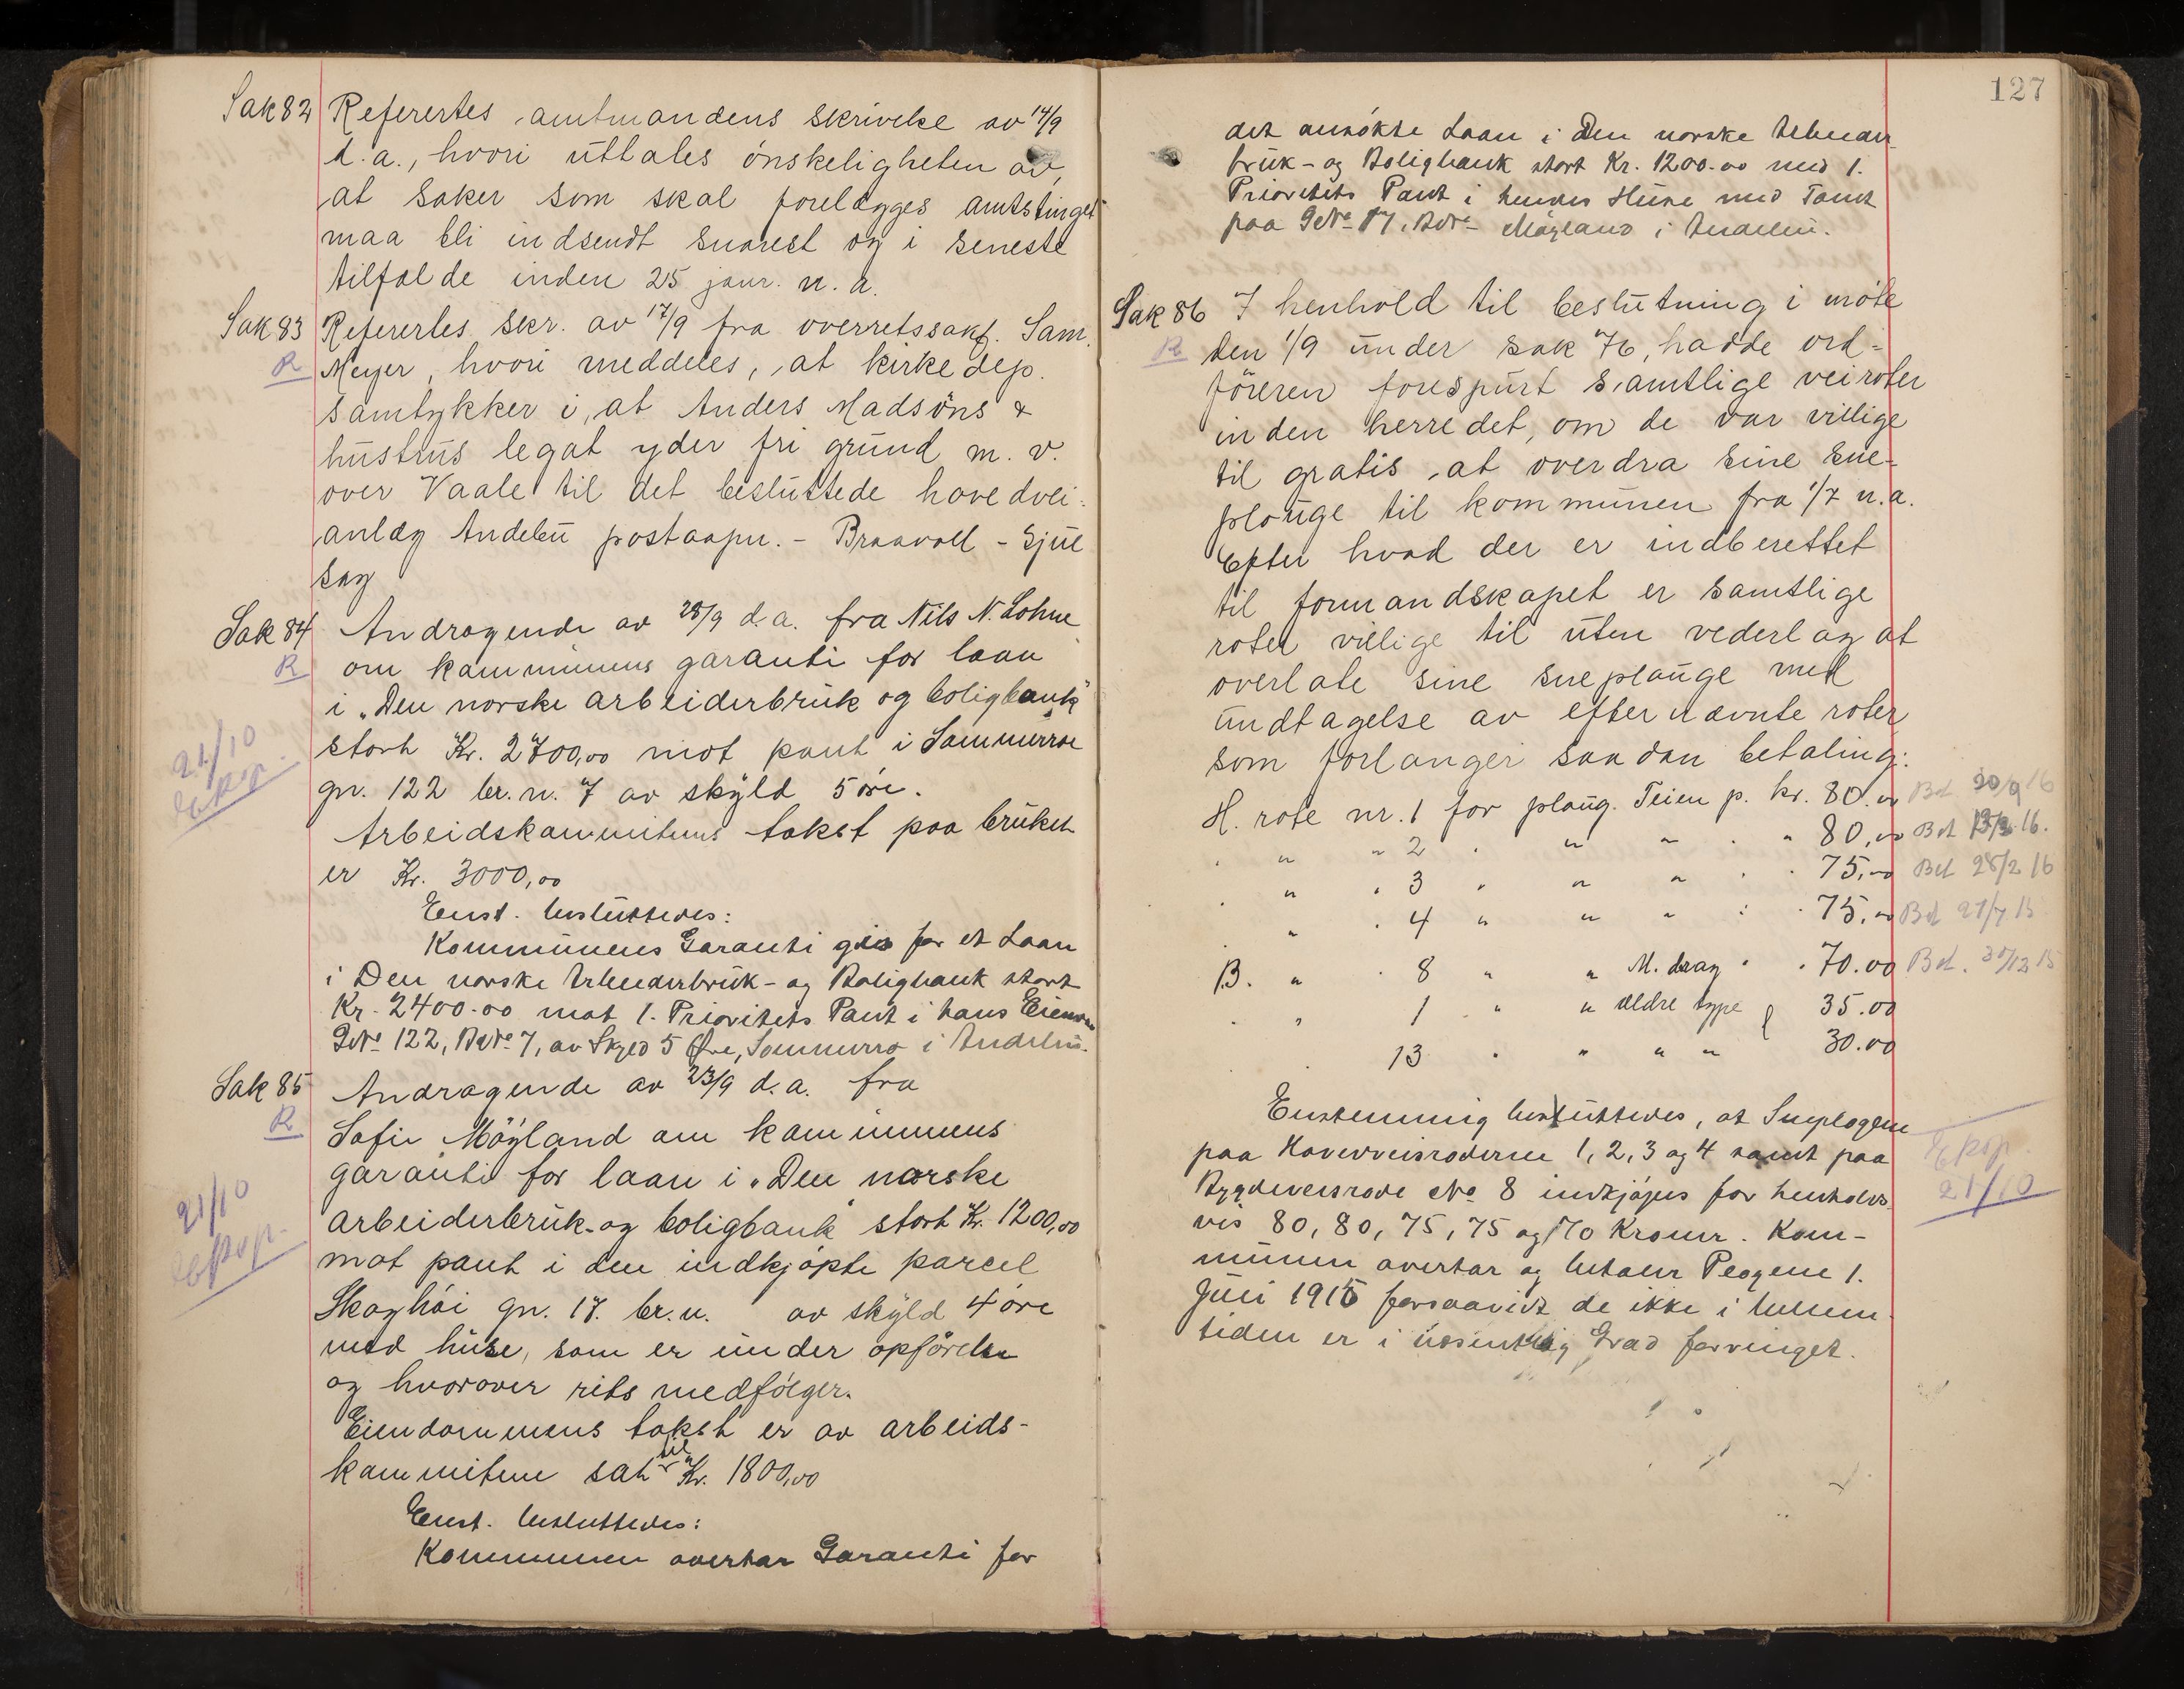 Sak 82 Referertes amtmandens skrivelse av 14/9
d.a., hvori uttales ónskeligheten av,
at saker som skal forelægges amtstinget
maa bli indsendt snarest og i seneste
tilfælde inden 25 janr. n.a.
Sak 83 Referertes skr. av 17/9 fra overretssakf. Sam.
R Meyer, hvori meddeles, at kirkedep.
samtykker i, at Anders Madsöns &
hustrus legat yder fri grund m.v.
over Vaale til det besluttede hovedvei-
anlæg Andebu postaapn. - Braavoll - Gjul
sag
Sak 84 Andragende av 28/9 d.a. fra Nils N. Lohne
R om kommunens garanti for laan
i „Den norske arbeiderbruk og boligbank"
21/10 stort Kr. 2700,00 mot pant i Sommerroe
Eksp. gn. 122 br.n. 7 av skyld 5 öre.
Arbeidskommiteens takst paa bruket
er Kr. 3000,00
Enst. besluttedes:
Kommunens Garanti gis for et Laan
i Den norske Arbeiderbruk- og Boligbank stort
Kr. 2400.00 mot 1. Prioritets Pant i hans Eiendom
GNo 122, BNo 7, av Skyld 5 Øre, Sommerro i Andebu.
Sak 85 Andragende av 23/9 d.a. fra
R Sofie Möyland om kommunens
garanti for laan i „Den norske
21/10 arbeiderbruk- og boligbank" stort Kr. 1200,00
Eksp. mot pant i den indkjöpte parcel
Skoghói gn. 17. br.n. av skyld 4 öre
med huse, som er under opförelse
og hvorover rids medfölger.
Eiendommens takst er av arbeids-
kommiteen sat til Kr. 1800,00
Enst. besluttedes:
Kommunen overtar Garanti for
127
det ansökte Laan i Den norske Arbeider
bruk- og Boligbank stort Kr. 1200.00 med 1.
Prioritets Pant i hendes Huse med Tomt
paa GNo 17, BNo - Möyland i Andebu.
Sak 86 I henhold til beslutning i móte
R den 1/9 under sak 76, hadde ord-
föreren forespurt samtlige veiroter
inden herredet, om de var villige
til gratis at overdra sine sne-
plouge til kommunen fra 1/7 n.a.
Efter hvad der er indberettet
til formandskapet er samtlige
roter villige til uten vederlag at
overlate sine sneplouge med
undtagelse av efternævnte roter
som forlanger saadan betaling:
H. rote nr. 1 for ploug. Teien p. kr. 80.00 Bet 30/9 16
" " 2 " " " " " 80,00 Bet 13/3 16.
" " 3 " " " " " 75,00 Bet 28/2 16
" " 4 " " " " " 75,00 Bet 27/7 15
B. " " 8 " " M. drag " " 70.00 Bet. 30/12 15
" " 1 " " ældre type } 35.00
13 " " " " 30.00
Enstemmig besluttedes, at Sneplogene
paa Hovedveisroderne 1, 2, 3 og 4 samt paa Eksp.
Bygdeveisrode No 8 indkjöpes for henholds- 21/10
vis 80, 80, 75, 75 og 70 Kroner. Kom-
munen overtar og betaler Plogene 1.
Juli 1915 forsaavidt de ikke i mellem-
tiden er i væsentlig Grad forringet.